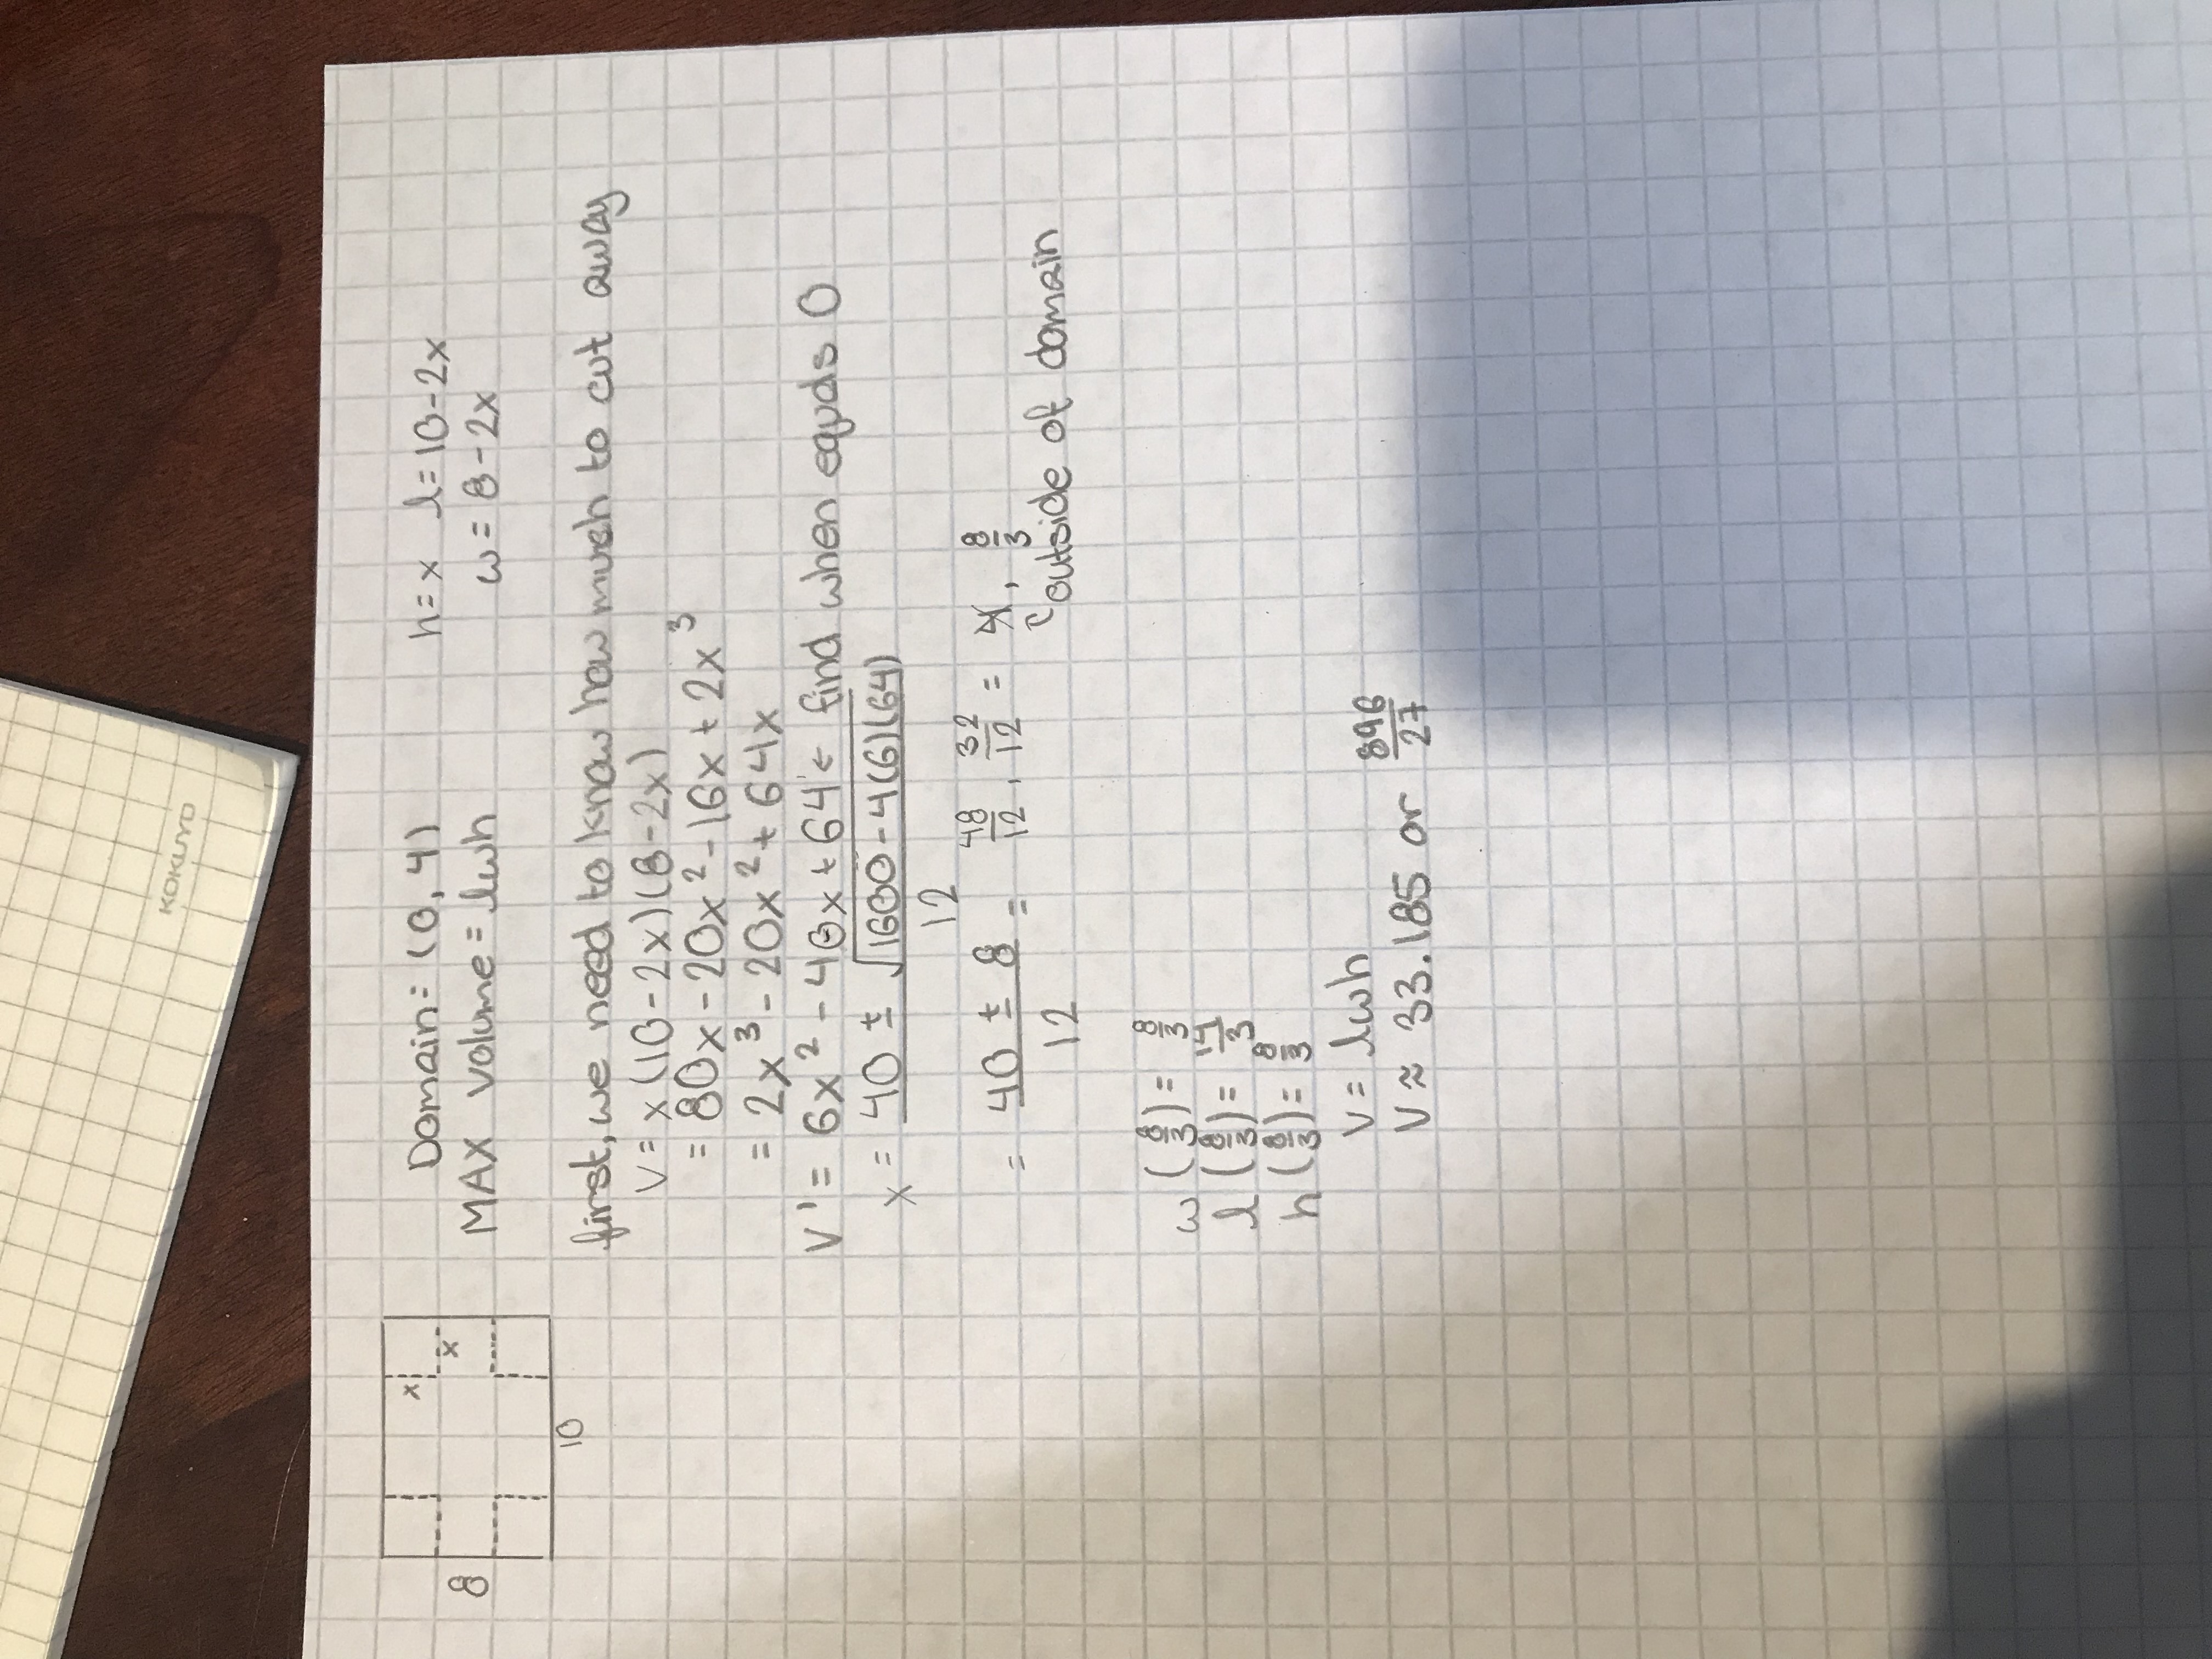 KOKUYO
8
x
x
10
Domain: (0, 4) h=x l=10-2x
MAX volume = lwh w=8-2x
first, we need to know how much to cut away
V = x(10-2x)(8-2x)
= 80x - 20x² - 16x + 2x³
= 2x³ - 20x² + 64x
V' = 6x² - 40x + 64 ← find when equals 0
x = (40 ± √(1600 - 4(6)(64)))/12
= (40 ± 8)/12 = 48/12, 32/12 = 4, 8/3
outside of domain
w(8/3) = 8/3
l(8/3) = 14/3
h(8/3) = 8/3
V = lwh
V ≈ 33.185 or 896/27